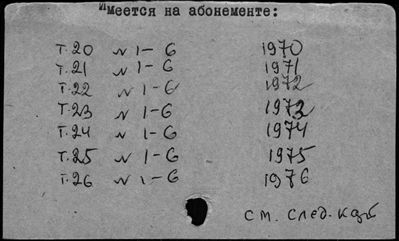 Имеется на абонементе:
Т.20 N 1-6 1970
Т.21 N 1-6 1971
Т.22 N 1-6 1972
Т.23 N 1-6 1973
Т.24 N 1-6 1974
Т.25 N 1-6 1975
Т.26 N 1-6 1976
см. след.